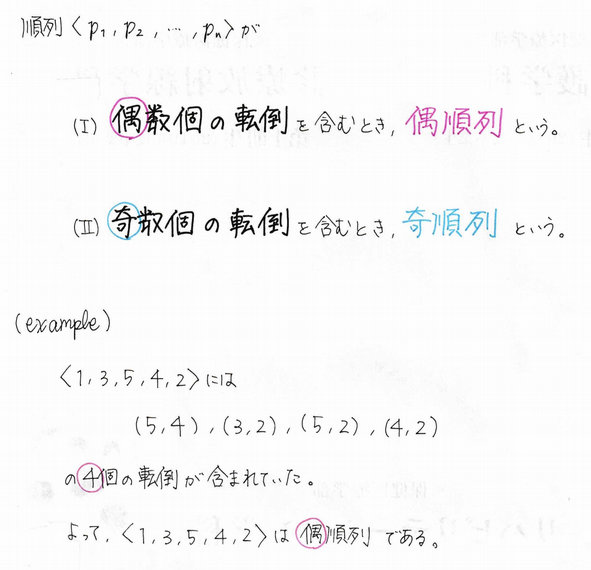 順列〈p₁, p₂, …, pₙ〉が
(I) 偶数個の転倒を含むとき, 偶順列という。
(II) 奇数個の転倒を含むとき, 奇順列という。
(example)
〈1, 3, 5, 4, 2〉には
(5,4), (3,2), (5,2), (4,2)
の4個の転倒が含まれていた。
よって, 〈1, 3, 5, 4, 2〉は偶順列である。